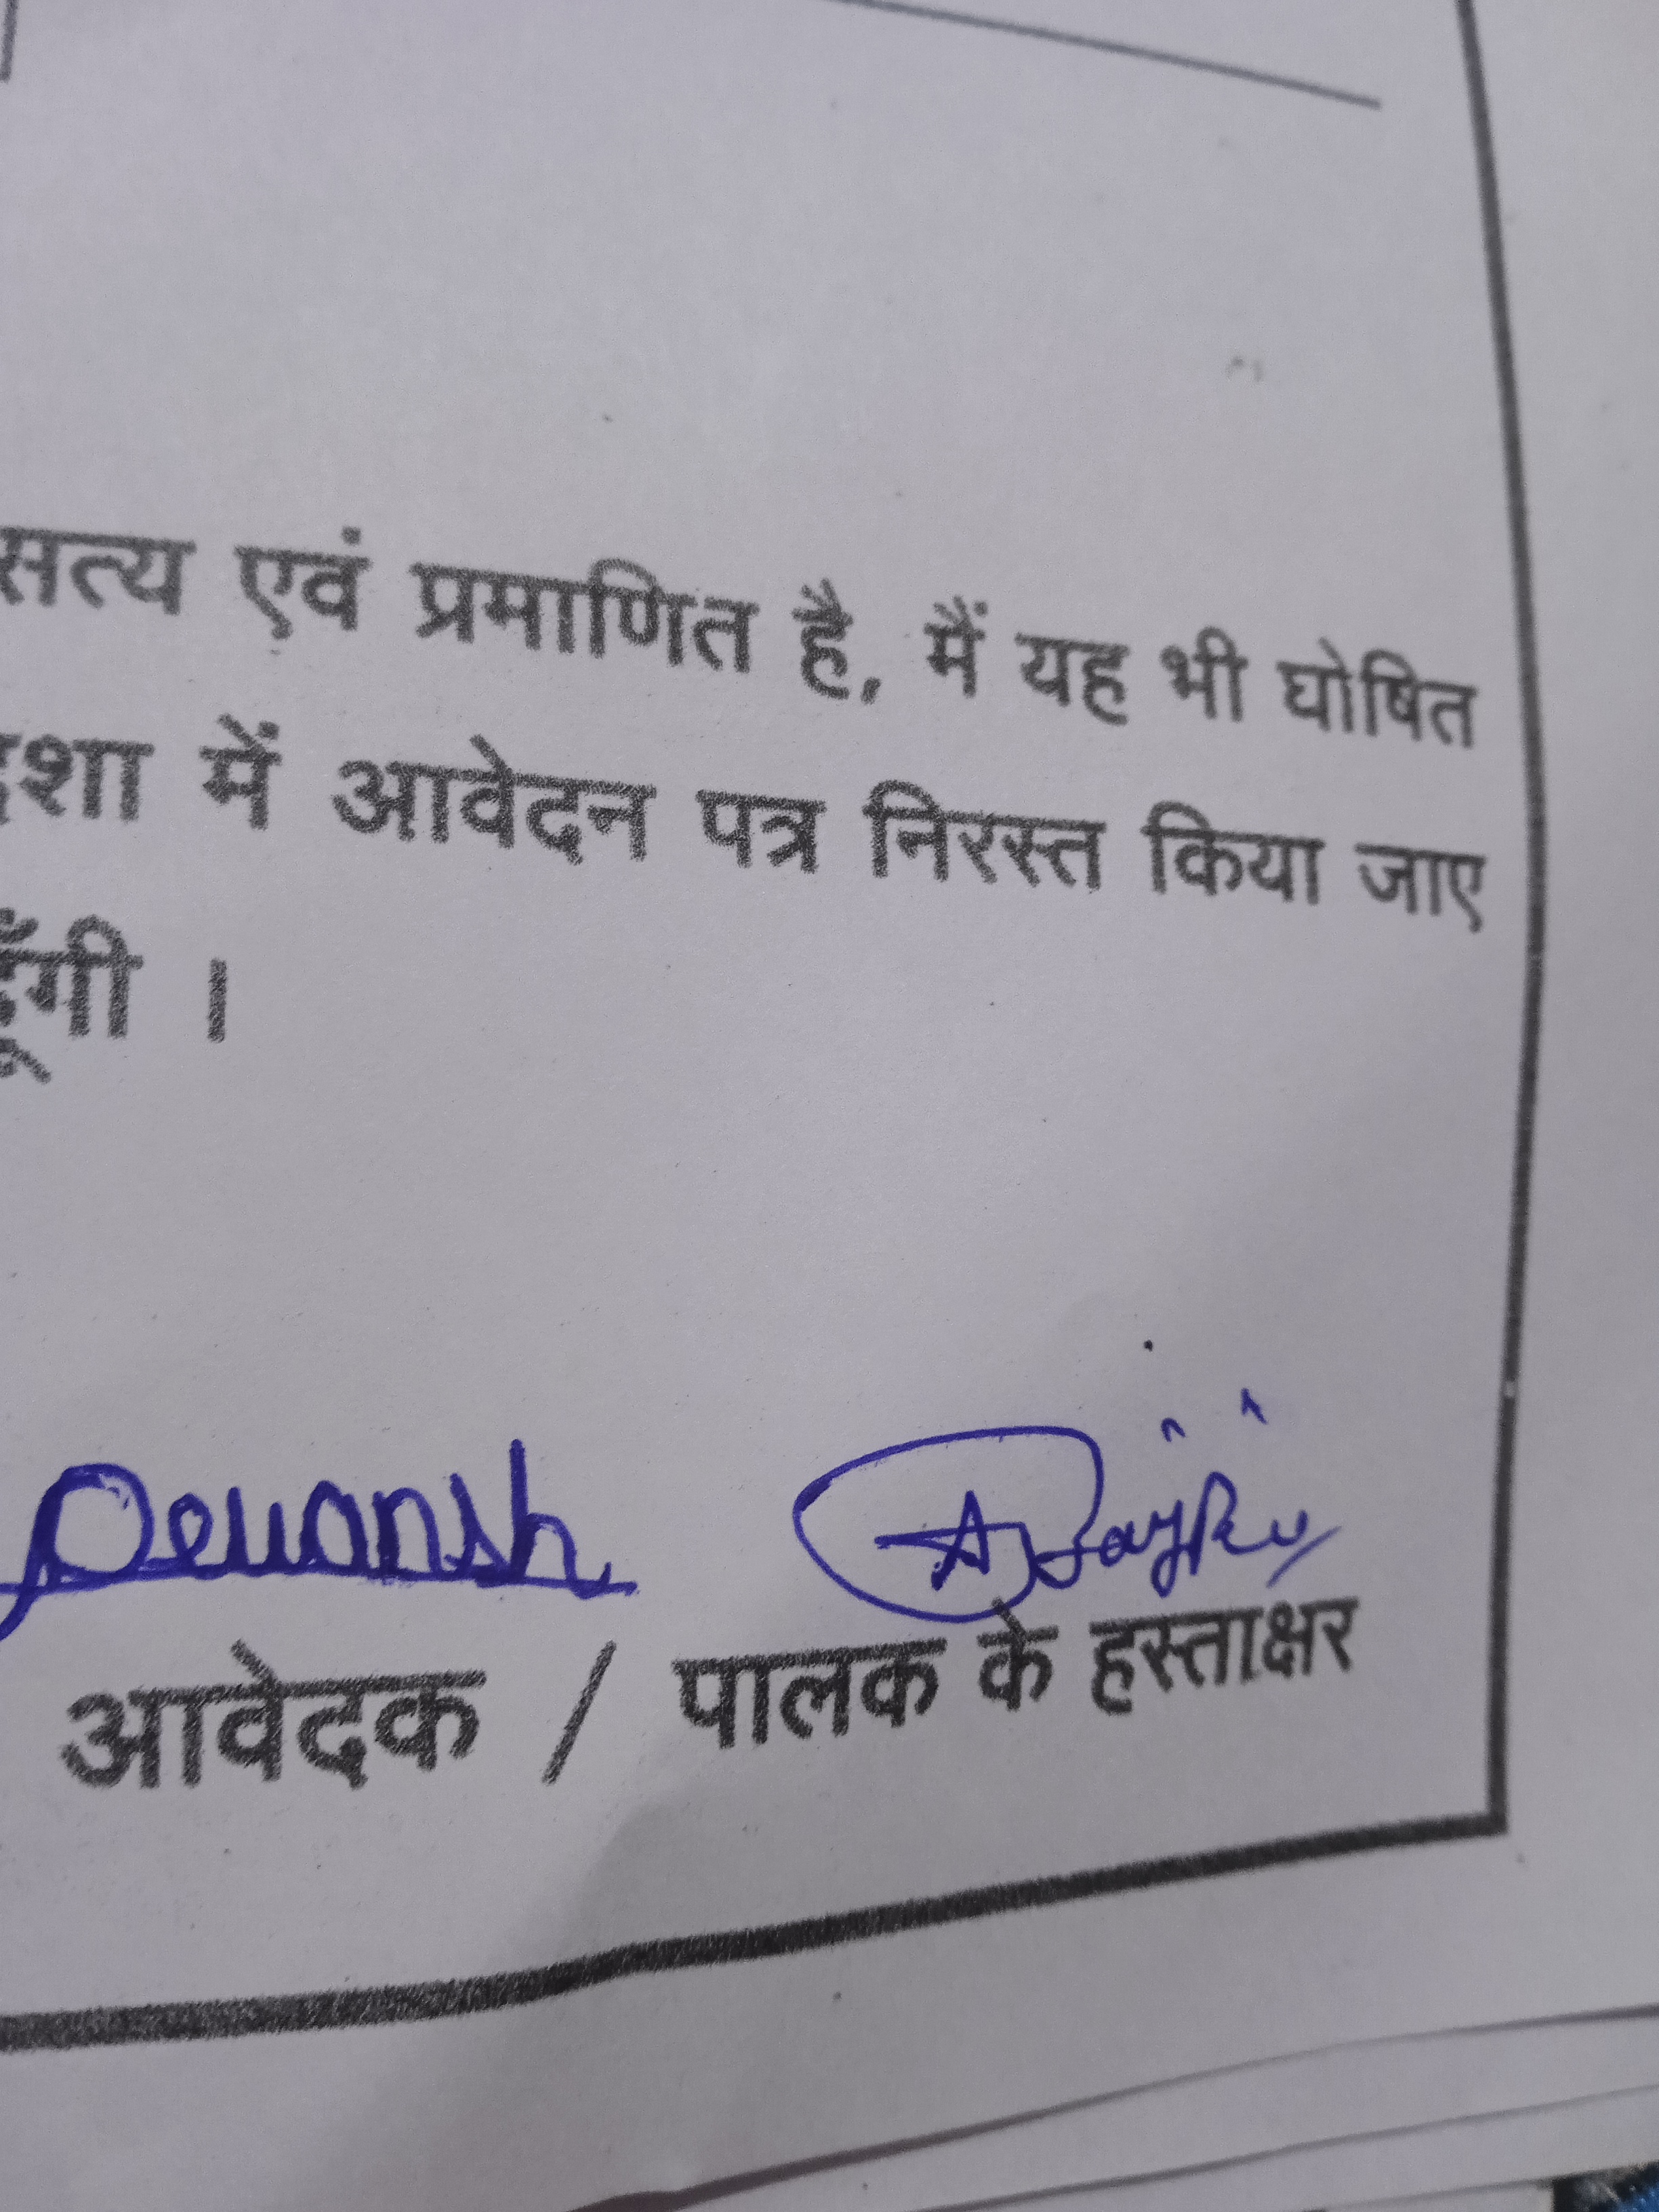 सत्य एवं प्रमाणित है, मैं यह भी घोषित
दशा में आवेदन पत्र निरस्त किया जाए
Devansh
आवेदक / पालक के हस्ताक्षर